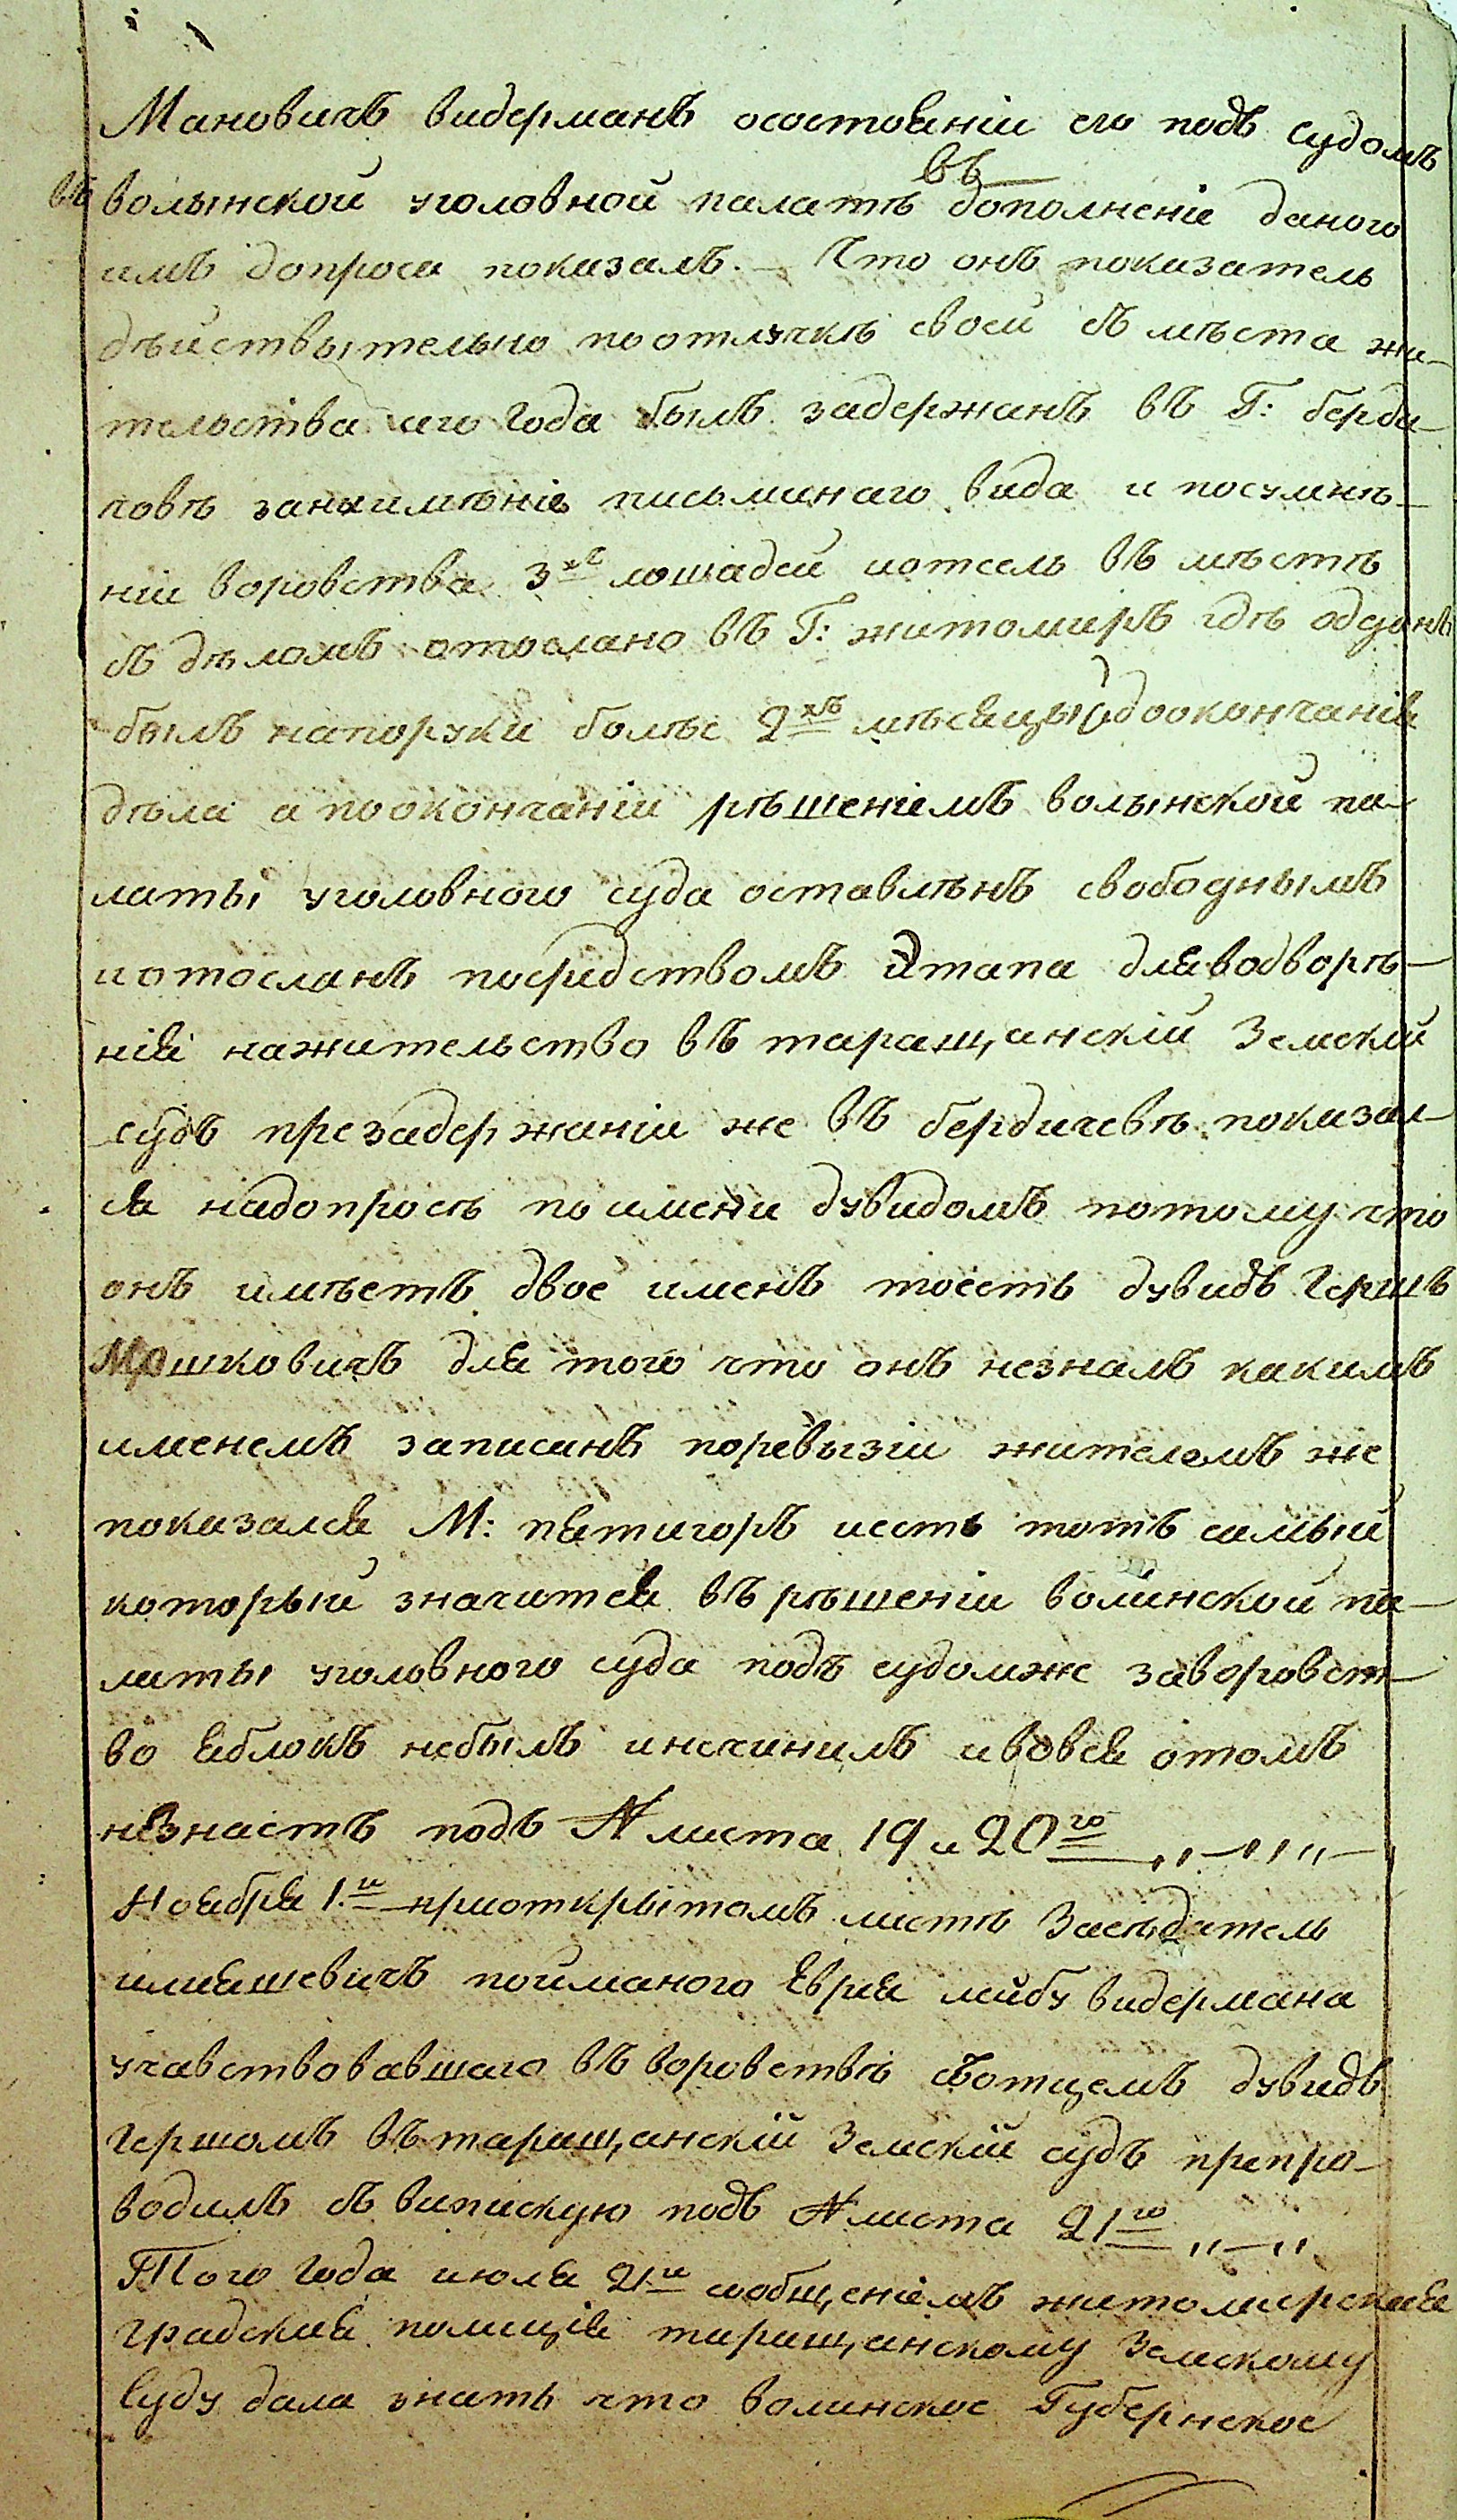 Мановичъ видерманъ осостоянiи его подъ судомъ
въ волынской уголовной палатѣ въ дополненiе даного
имъ допроса показалъ. — Что онъ показатель
дѣйствытельно поотлучкѣ своей съ мѣста жи-
тельства сего года былъ задержанъ въ Г: берди-
човѣ занеимѣнiе письминаго вида и посумнѣ-
нiи воровства 3хъ лошадей иотсель въ мѣстѣ
съ дѣломъ отослано въ Г: житомиръ гдѣ одданъ
былъ напоруки болѣе 2хъ мѣсяцый доокончанiя
дѣла а поокончанiи рѣшенiемъ волынской па-
латы уголовного суда оставлѣнъ свободнымъ
иотосланъ посредствомъ этапа дляводворѣ-
нiя нажительство въ таращанскiй Земскiй
судъ презадержанiи же въ бердичевѣ показал-
ся надопросѣ по имени дувидомъ потому что
онъ имѣетъ двое именъ тоесть дувидъ Гершъ
Мошковичъ для того что онъ незналъ какимъ
именемъ записанъ поревызiи жителемъ же
показался М: пятигоръ иесть тотъ самый
который значится въ рѣшенiи волинской па-
латы уголовного суда подъ судомже заворовст-
во яблокъ небылъ инечинилъ ивовся отомъ
незнаетъ подъ № листа 19 и 20го
Ноября 1.й приоткрытомъ листѣ Засѣдатель
илияшевичъ пойманого Еврея лейбу видермана
учавствовавшаго въ воровствѣ сботцемъ дувидъ
Гершомъ въ таращанскiй Земскiй судъ препро-
водилъ съ випискую подъ № листа 21го
Того года июля 21й сообщенiемъ житомирская
градская полицiя таращанскому Земскому
Суду дала знать что волинское Губернское